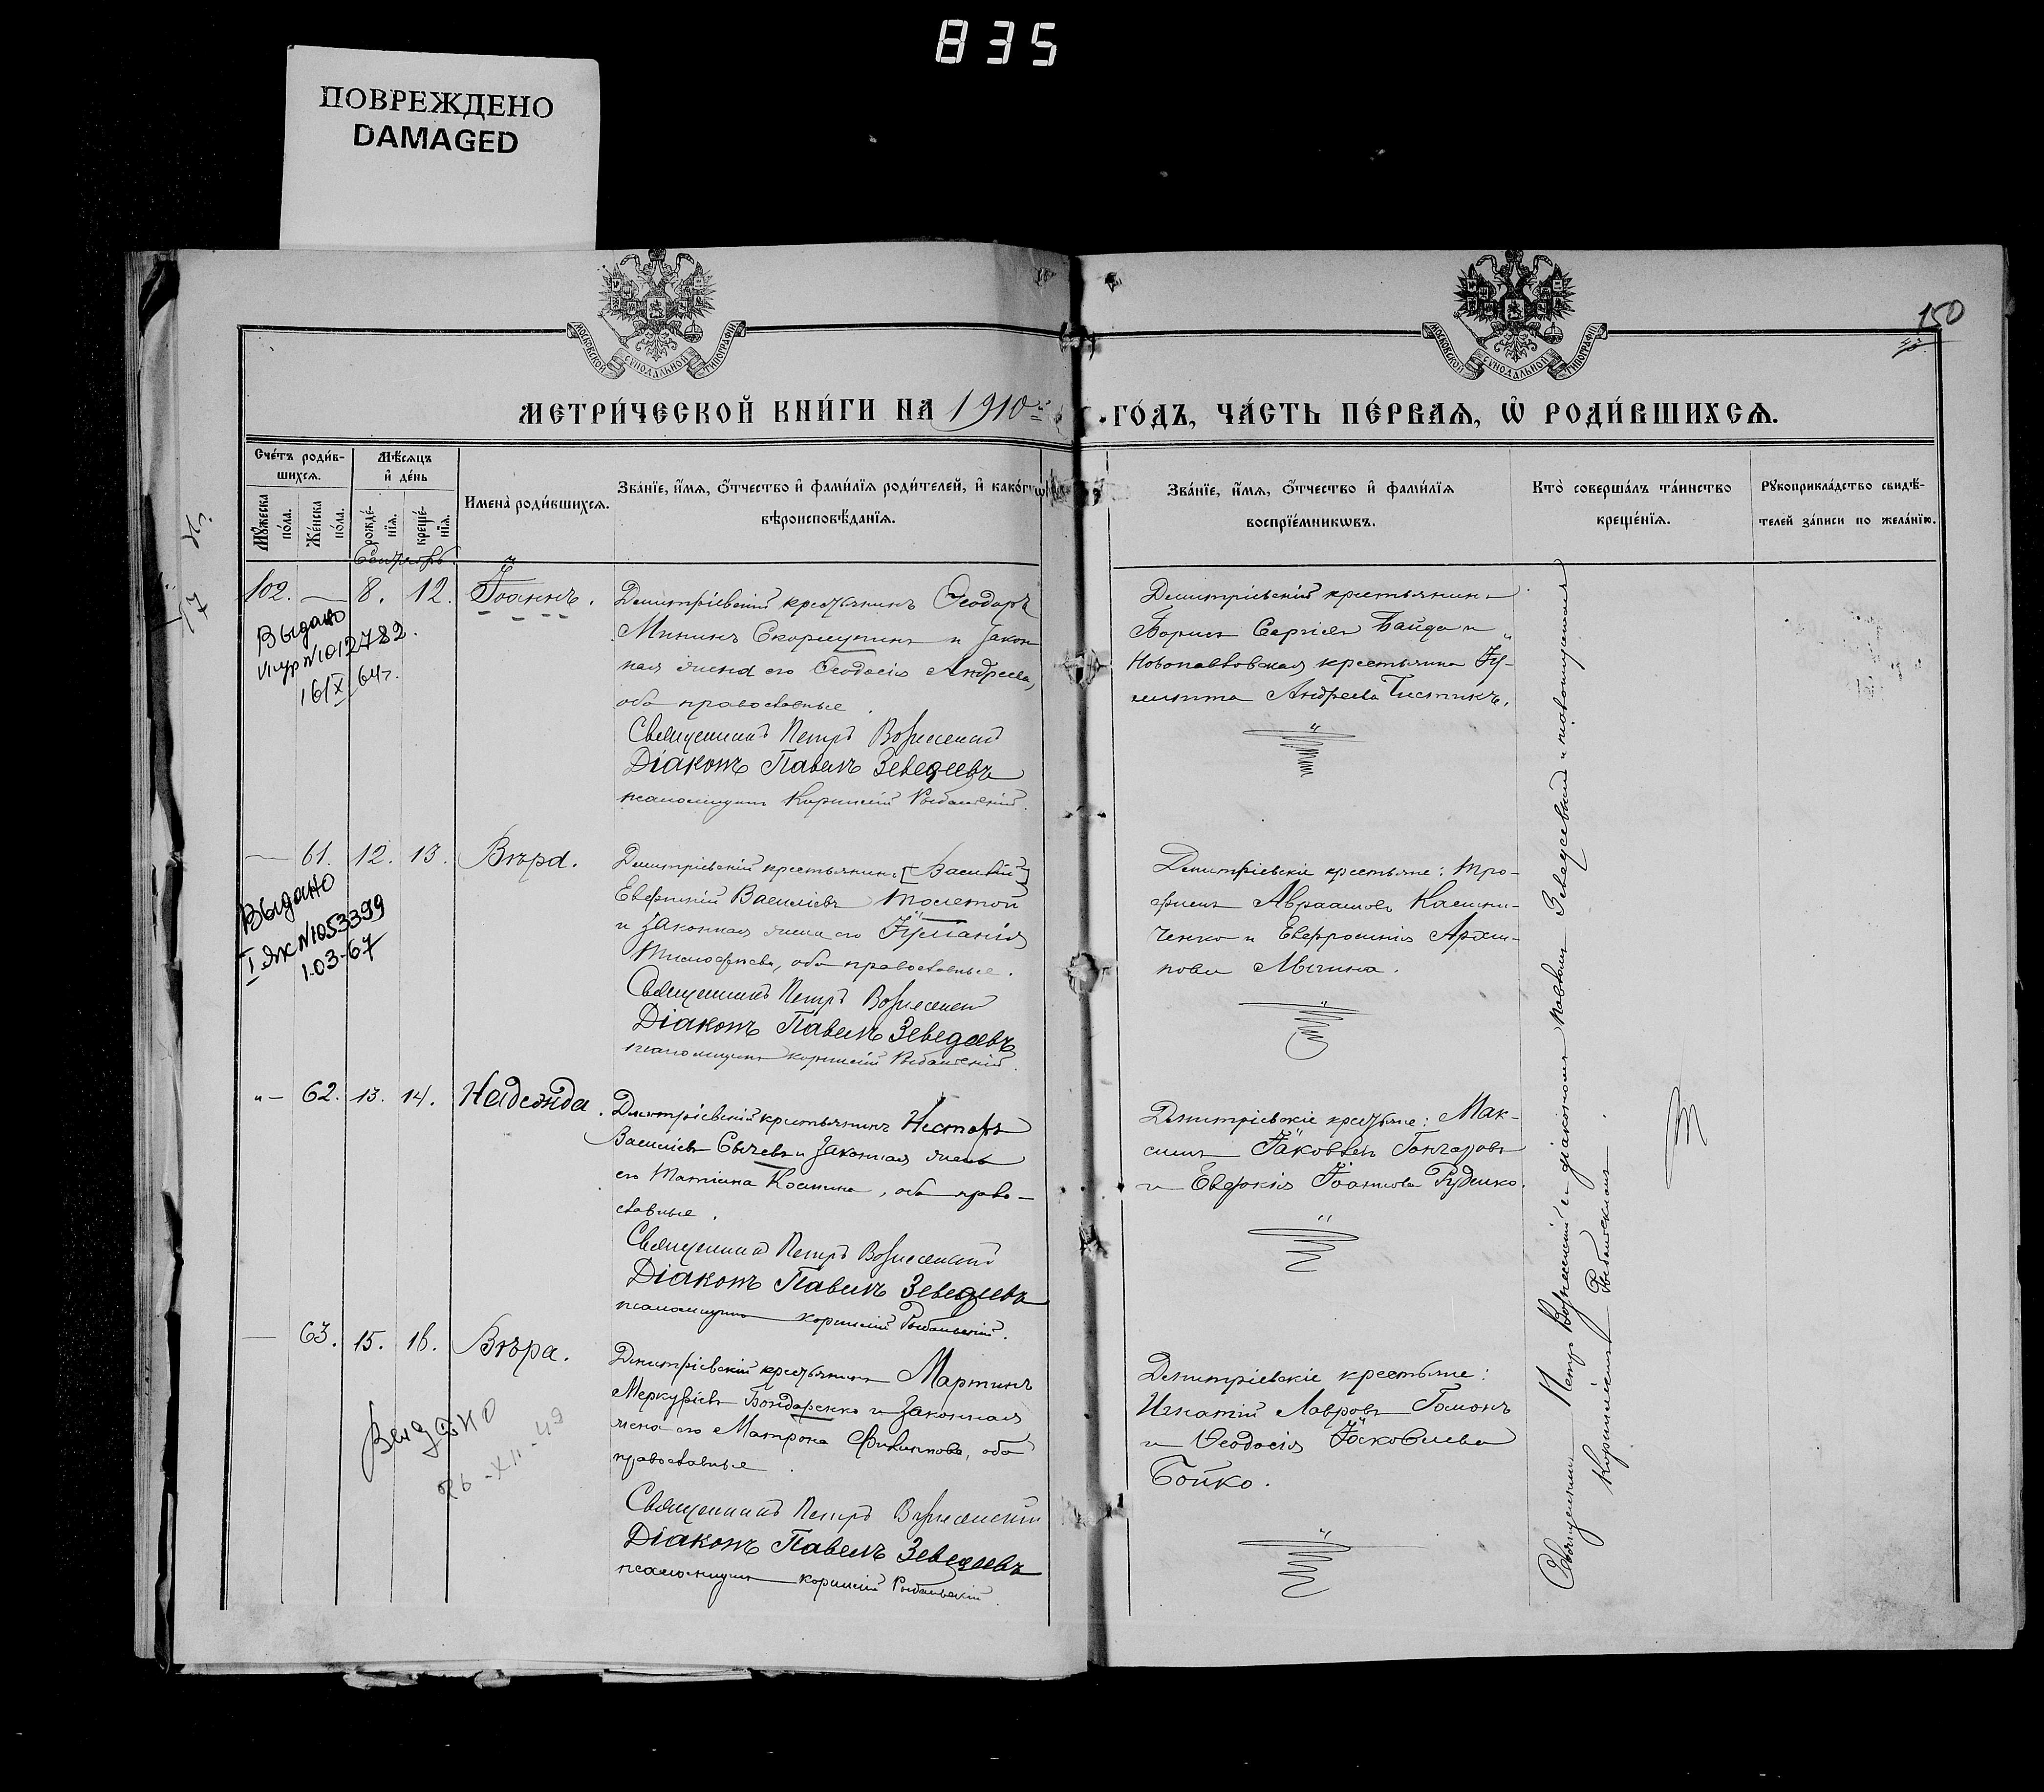 835
ПОВРЕЖДЕНО
DAMAGED
МОСКОВСКОЙ СѴНОДАЛЬНОЙ ТИПОГРАФІИ
МОСКОВСКОЙ СѴНОДАЛЬНОЙ ТИПОГРАФІИ
150
МЕТРИ́ЧЕСКОЙ КНИ́ГИ НА 1910 ГО́ДЪ, ЧА́СТЬ ПЕ́РВАѦ, Ѡ РОДИ́ВШИХСѦ.
Сче́тъ роди́в-
шихсѧ.
Мꙋ́жеска
по́ла.
Же́нска
по́ла.
Мѣ́сѧцъ
и҆ де́нь
рожде́-
нїѧ.
креще́-
нїѧ.
Имена̀ роди́вшихсѧ.
Зва́нїе, и҆́мѧ, ѻ҆́тчество и҆ фами́лїѧ роди́телей, и҆ како́гѡ
вѣроисповѣ́данїѧ.
Зва́нїе, и҆́мѧ, ѻ҆́тчество и҆ фами́лїѧ
воспрїе́мникѡвъ.
Кто̀ соверша́лъ та́инство
креще́нїѧ.
Рꙋкоприкла́дство свидѣ́-
телей за́писи по жела́нїю.
Сентябрь
102. — 8. 12. Іоаннъ.
Выдано
N1012782.
16/X 64г.
Димитріевскій крестьянинъ Ѳеодоръ
Мининъ Скормупинъ и закон
ная жена его Ѳеодосія Андреева,
оба православные.
Священникъ Петръ Вознесенскій
Діаконъ Павелъ Зеведеевъ
псаломщикъ Корнилій Рыбальскій.
Димитріевскій крестьянинъ
Борисъ Сергіевъ Байда и
Новопавловская крестьянка Іу-
литта Андреева Чистикъ.
— 61. 12. 13. Вѣра.
Выдано
I ЯК N1053399
1-03-67
Димитріевскій крестьянинъ [Василій]
Евфимій Васильевъ Толстой
и законная жена его Іуліанія
Тимофеева, оба православные.
Священникъ Петръ Вознесенскій
Діаконъ Павелъ Зеведеевъ
псаломщикъ Корнилій Рыбальскій.
Димитріевскіе крестьяне: Тро-
фимъ Авраамовъ Касьяни-
ченко и Евфросинія Архи-
пова Мягина.
" — 62. 13. 14. Надежда.
Димитріевскій крестьянинъ Несторъ
Васильевъ Сычевъ и законная жена
его Татіана Космина, оба право-
славные.
Священникъ Петръ Вознесенскій
Діаконъ Павелъ Зеведеевъ
псаломщикъ Корнилій Рыбальскій.
Димитріевскіе крестьяне: Мак-
симъ Іаковлевъ Гончаровъ
и Евдокія Іоаннова Руденко.
— 63. 15. 16. Вѣра.
Выдано
26-XII-49
Димитріевскій крестьянинъ Мартинъ
Меркуріевъ Бондаренко и законная
жена его Матрона Филиппова, оба
православные
Священникъ Петръ Вознесенскій
Діаконъ Павелъ Зеведеевъ
псаломщикъ Корнилій Рыбальскій.
Димитріевскіе крестьяне:
Игнатій Лавровъ Гамонъ
и Ѳеодосія Іаковлева
Бойко.
Священникъ Петръ Вознесенскій съ діакономъ Павломъ Зеведеевымъ и псаломщикомъ
Корниліемъ Рыбальскимъ.